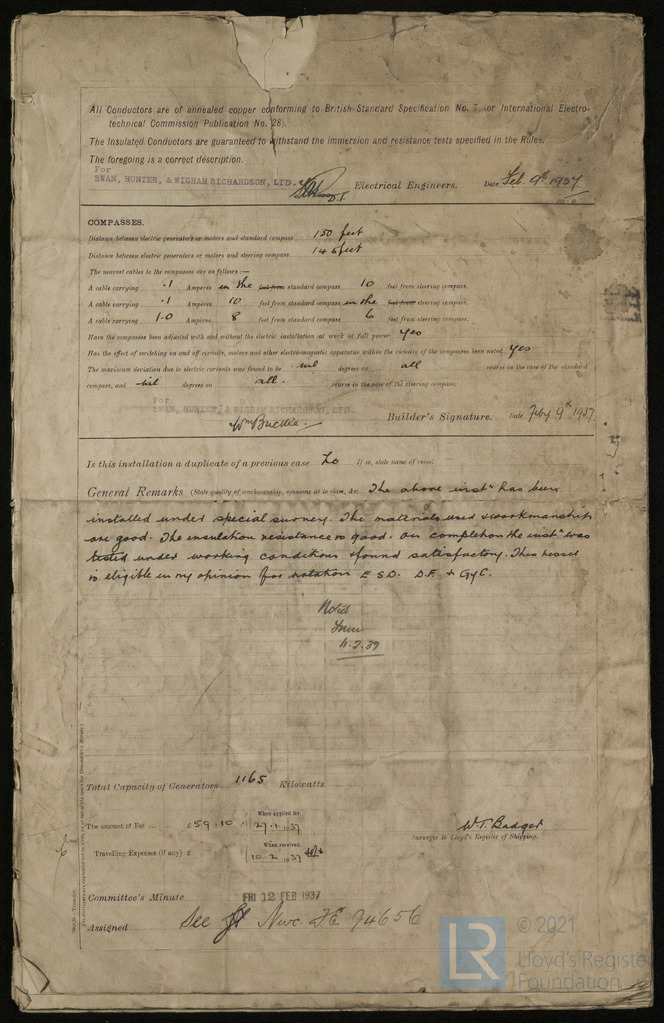 All Conductors are of annealed copper conforming to British Standard Specification No. 7 (or International Electro-
technical Commission Publication No. 28).
The Insulated Conductors are guaranteed to withstand the immersion and resistance tests specified in the Rules.
The foregoing is a correct description.
For
SWAN, HUNTER, & WIGHAM RICHARDSON, LTD. Electrical Engineers. Date Feb. 9th 1937
COMPASSES.
Distance between electric generators or motors and standard compass 150 feet
Distance between electric generators or motors and steering compass 145 feet
The nearest cables to the compasses are as follows:—
A cable carrying .1 Ampères in the feet from standard compass 10 feet from steering compass.
A cable carrying .1 Ampères 10 feet from standard compass in the feet from steering compass.
A cable carrying 1.0 Ampères 8 feet from standard compass 6 feet from steering compass.
Have the compasses been adjusted with and without the electric installation at work at full power yes
Has the effect of switching on and off circuits, motors and other electro-magnetic apparatus within the vicinity of the compasses been noted yes
The maximum deviation due to electric currents was found to be nil degrees on all course in the case of the standard
compass, and nil degrees on all. course in the case of the steering compass.
For
SWAN, HUNTER, & WIGHAM RICHARDSON, LTD.
Builder's Signature. Date Feby 9th 1937
Is this installation a duplicate of a previous case No If so, state name of vessel
General Remarks (State quality of workmanship, opinions as to class, &c. The above instn has been
installed under special survey. The materials used & workmanship
are good. The insulation resistance is good. On completion the instn was
tested under working conditions & found satisfactory. This vessel
is eligible in my opinion for notation E.S.D. D.F. + GyC.
Noted
11.2.37
Total Capacity of Generators 1165 Kilowatts.
The amount of Fee ... ... £59.10. When applied for, 27.1.1937
Travelling Expenses (if any) £ When received, 10.2.1937
W.T. Badger
Surveyor to Lloyd's Register of Shipping.
Committee's Minute FRI 12 FEB 1937
Assigned See Nwc. F.E. 94656
LR
© 2021
Lloyd's Register
Foundation